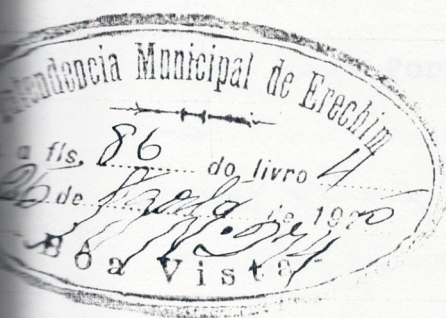 ntendencia Municipal de Erechim
a fls. 86 do livro 4
26 de de 19
Bôa Vista